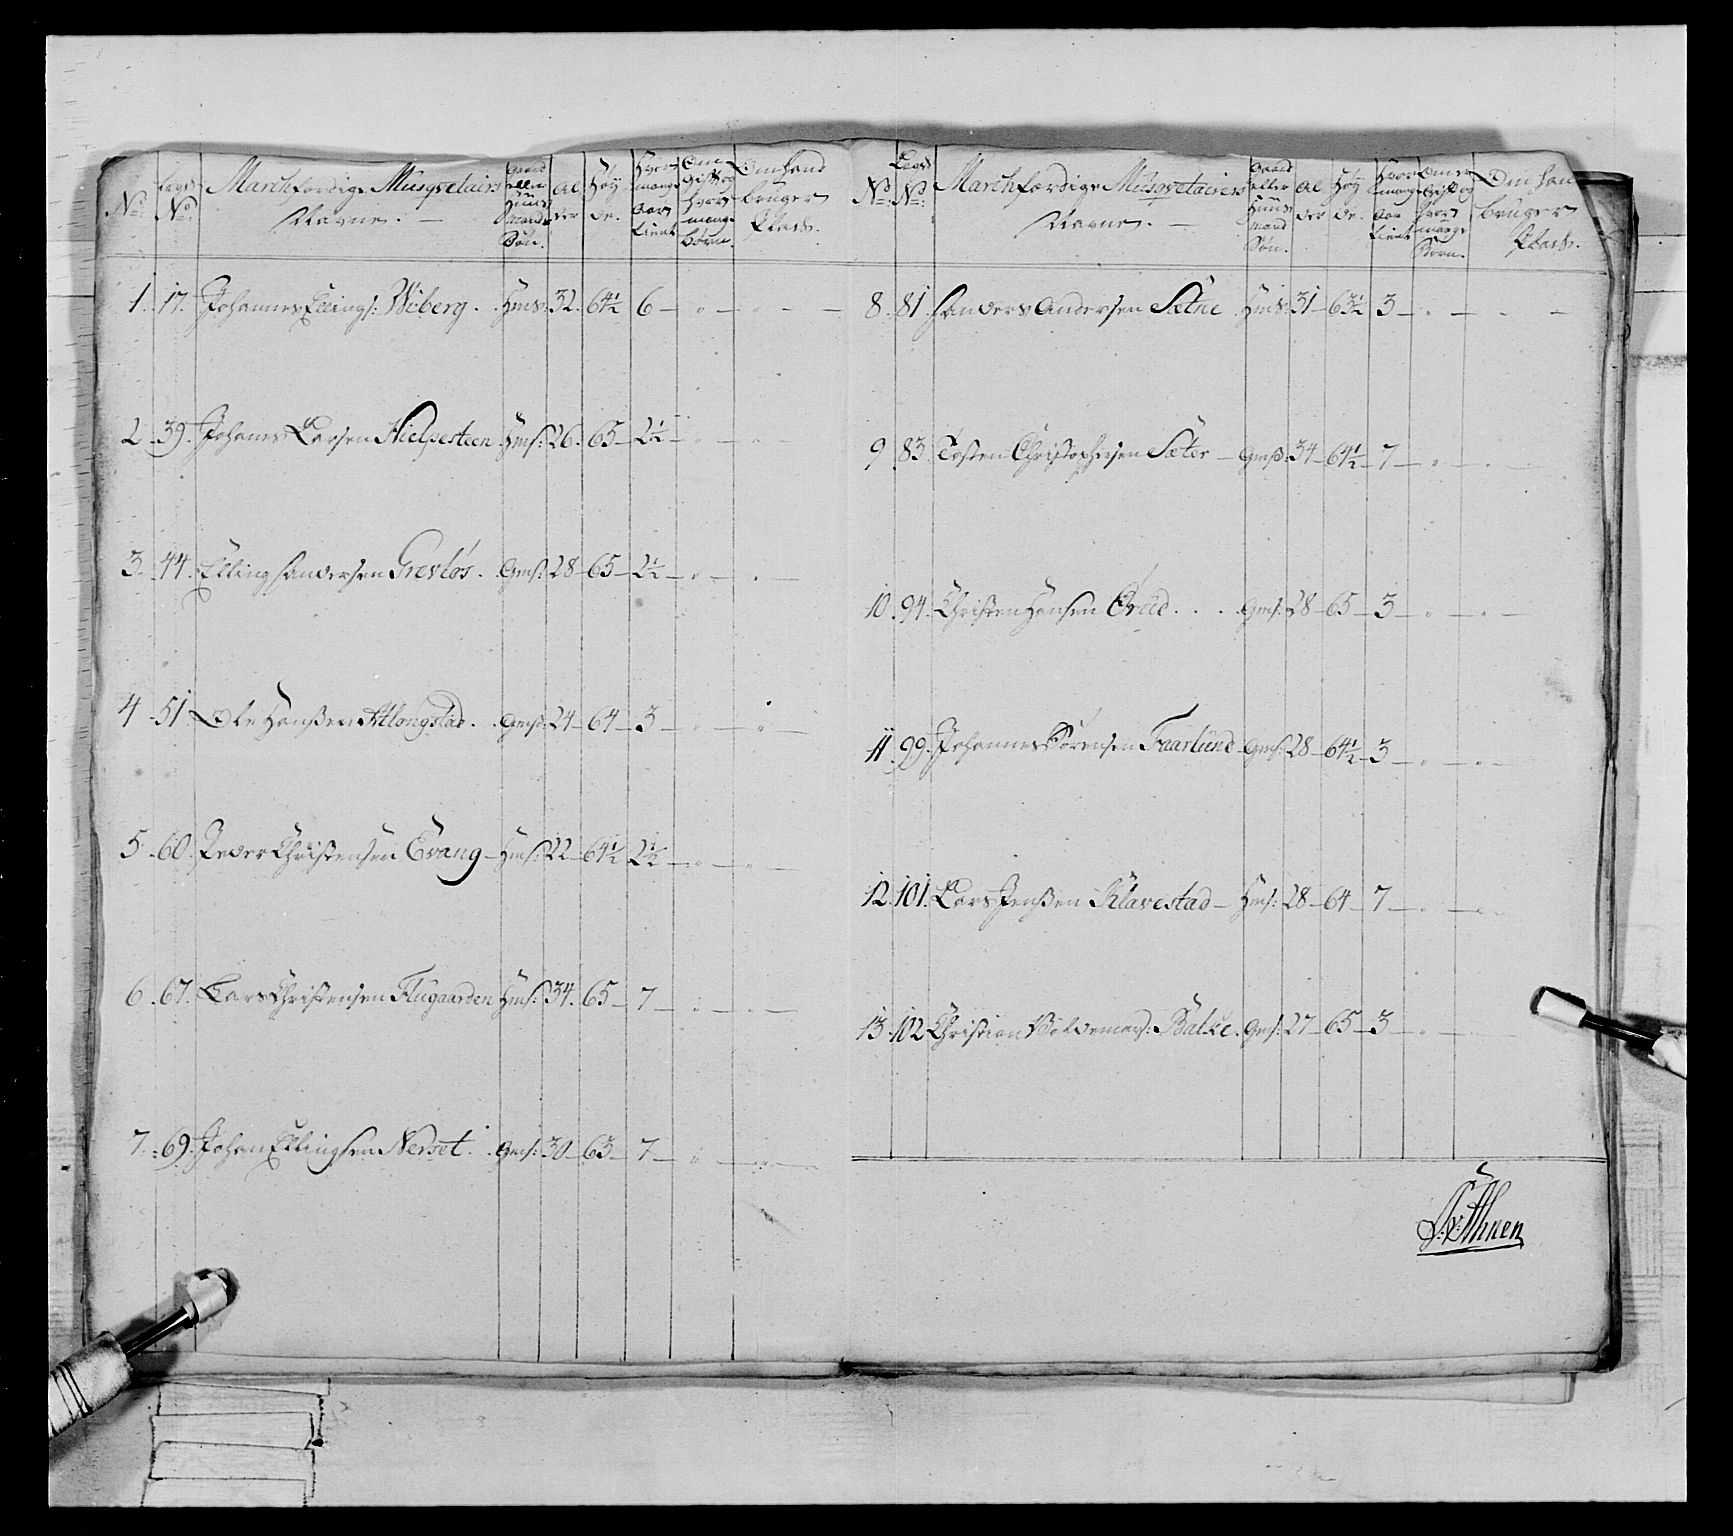 No: Lægds No: Marchfærdige Musqvetairs Navne. Gaard eller Huus Mands Søn. Al der Høy de. Hvor mange Aar tient Om Gift og hvor mange børn. Om hand bruger Plads.
1. 17. Johannes Ellings: Wiberg. Hms: 32. 64½ 6 — " — " — —
2. 39. Johannes Larsen Hielpesteen Hms: 26. 65 — 2½ — " — "
3. 44. Elling Andersen Grevløs. Gms: 28 — 65 — 2½ — " — " —
4. 51 Ole Hanssen Alongstad. Gms: 24 — 64 — 3 " — " —
5. 60. Peder Christensen Evang — Hms: 22 — 64½ 2½ — " — " —
6. 67. Lars Christensen Flugaarden Hms: 34. 65 — 7 — " — " —
7. 69. Johan Ellingsen Nerset. Gms: 30 — 63 — 7 — " — " —
No: Lægds No: Marchfærdige Musqvetairers Navne. — Gaard eller Huus Mand Søn. Al der Høy de. Hvor mange Aar tient Om er Gift og hvor mange Børn. Om han bruger Plads.
8. 81. Anders Andersen Sætne Hms: 31 — 63½ 3 — " — — —
9. 83. Tosten Christophersen Sæter — Gms: 34 — 64½ — 7 — " — "
10. 94. Christen Hansen Øvud. . . Gms: 28 — 65 — 3 — " — " —
11. 99. Johannes Sørensen Faarlund Gms: 28 — 64½ — 3 — " — " —
12. 101. Lars Jenssen Klavestad — Hms: 28 — 64 — 7 — " — "
13. 102 Christian Woldemars: Balke. Gms: 27 — 65 — 3 — " —